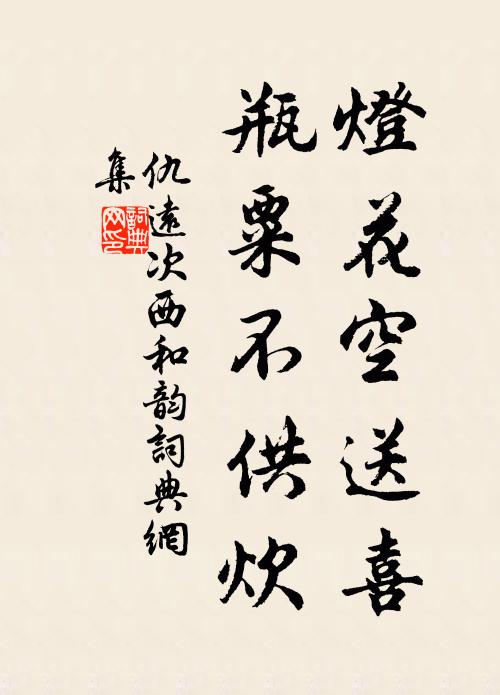 燈花空送喜
瓶粟不供炊
仇遠次西和韵詞典網
集
詞典
网印